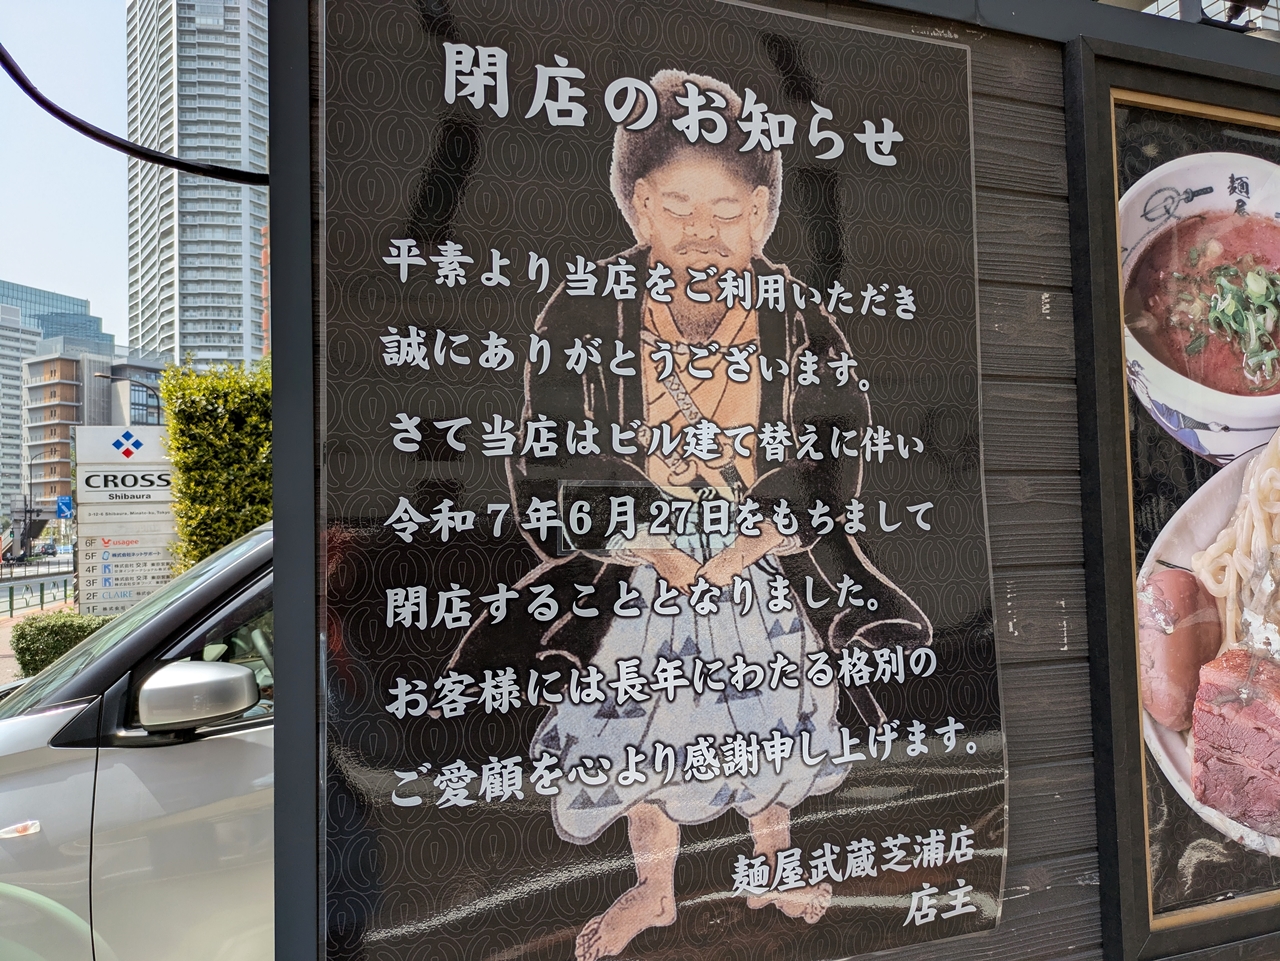 閉店のお知らせ
平素より当店をご利用いただき
誠にありがとうございます。
さて当店はビル建て替えに伴い
令和7年6月27日をもちまして
閉店することとなりました。
お客様には長年にわたる格別の
ご愛顧を心より感謝申し上げます。
麺屋武蔵芝浦店
店主
CROSS
Shibaura
3-12-6 Shibaura, Minato-ku, Tokyo
6F usagee
5F 株式会社ネットサポート
4F 株式会社 交洋
3F 株式会社 交洋
2F CLAIRE 株式会社
1F 株式会社
麺屋